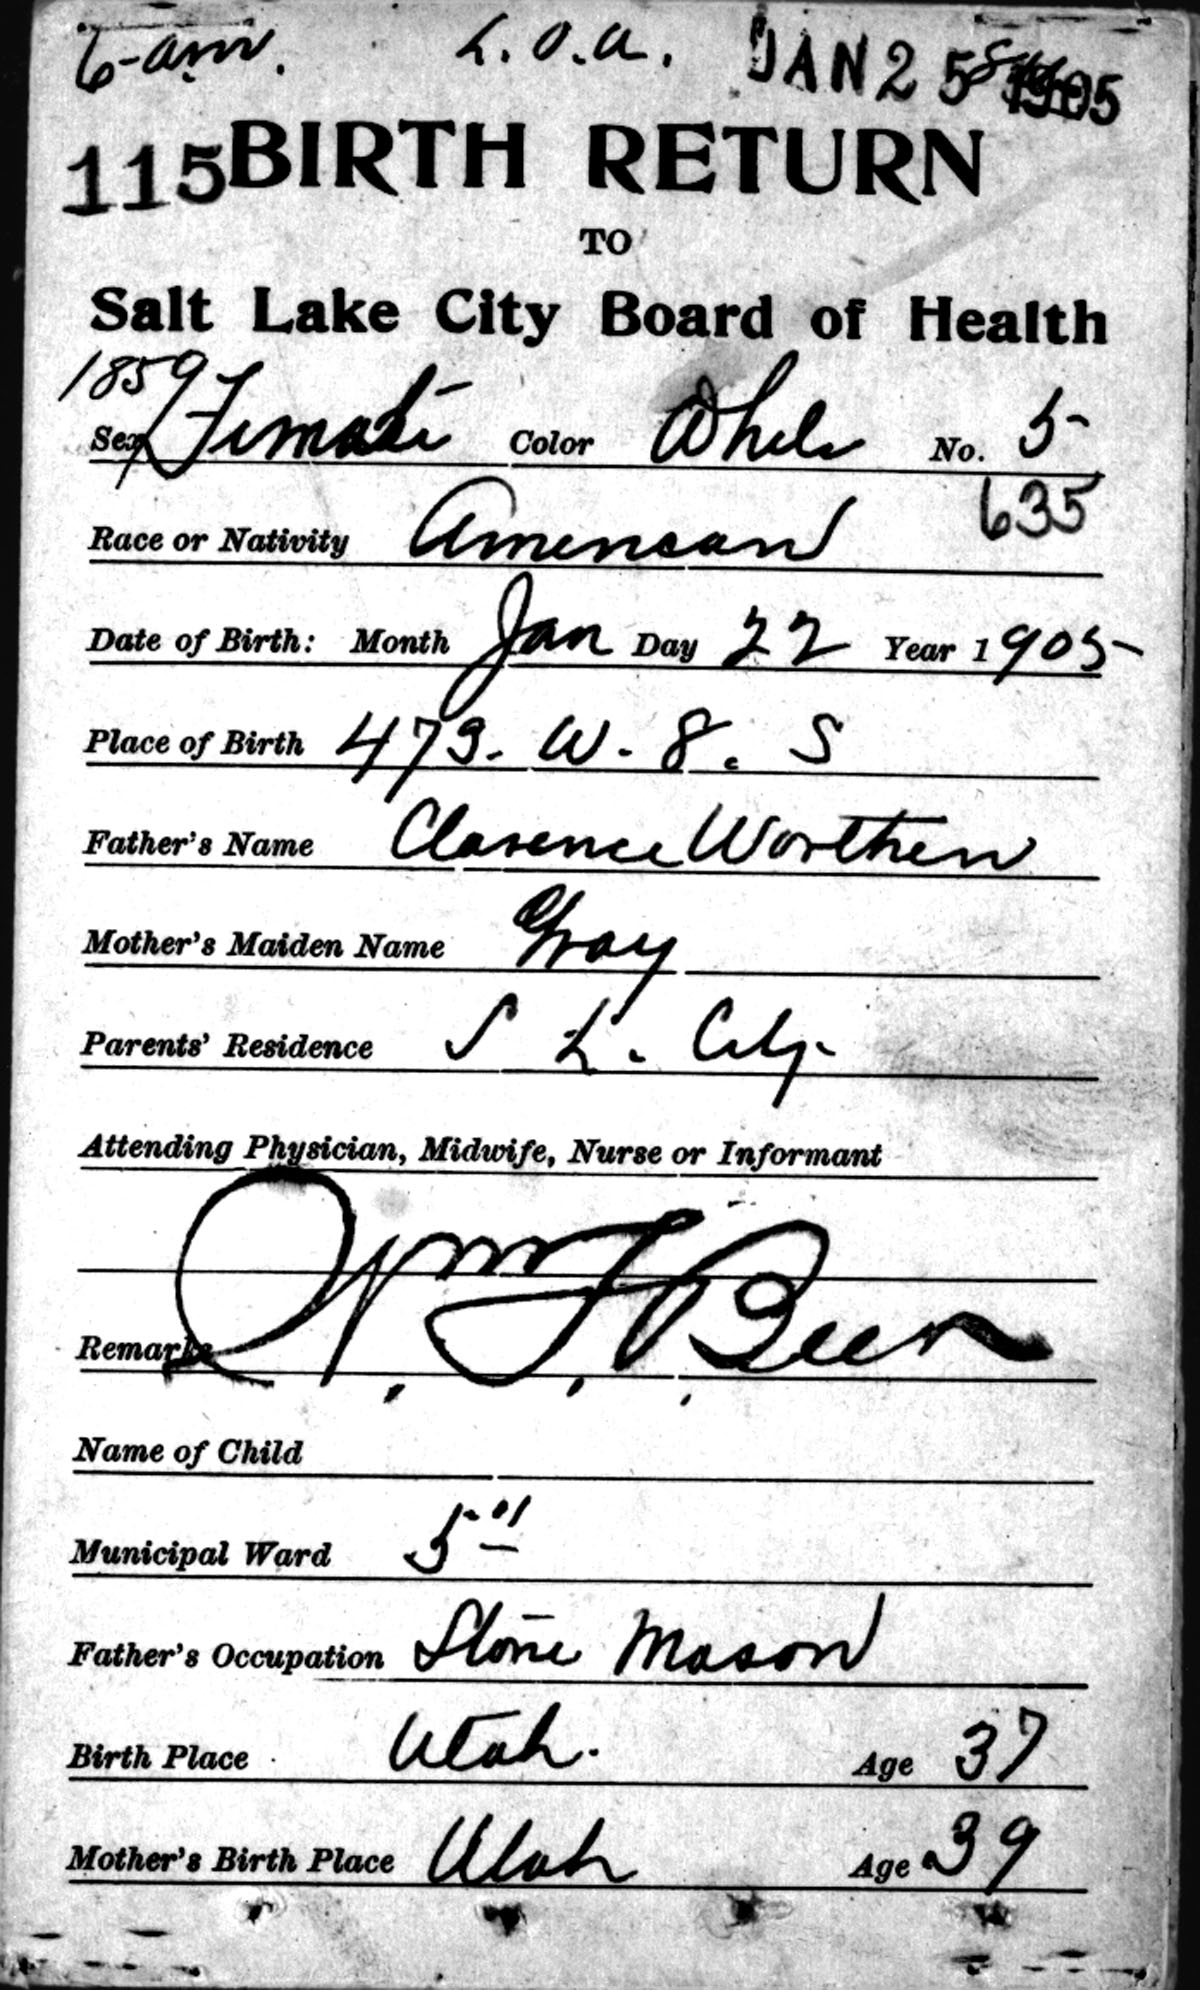 6-am. L. O. a. JAN 25 1905
115 BIRTH RETURN
TO
Salt Lake City Board of Health
1859
Sex Female Color White No. 5
635
Race or Nativity American
Date of Birth: Month Jan Day 22 Year 1905
Place of Birth 473. W. 8. S
Father's Name Clarence Worthen
Mother's Maiden Name Gray
Parents' Residence S L. City
Attending Physician, Midwife, Nurse or Informant
Wm F Beer
Remarks
Name of Child
Municipal Ward 5"
Father's Occupation Stone Mason
Birth Place Utah. Age 37
Mother's Birth Place Utah Age 39